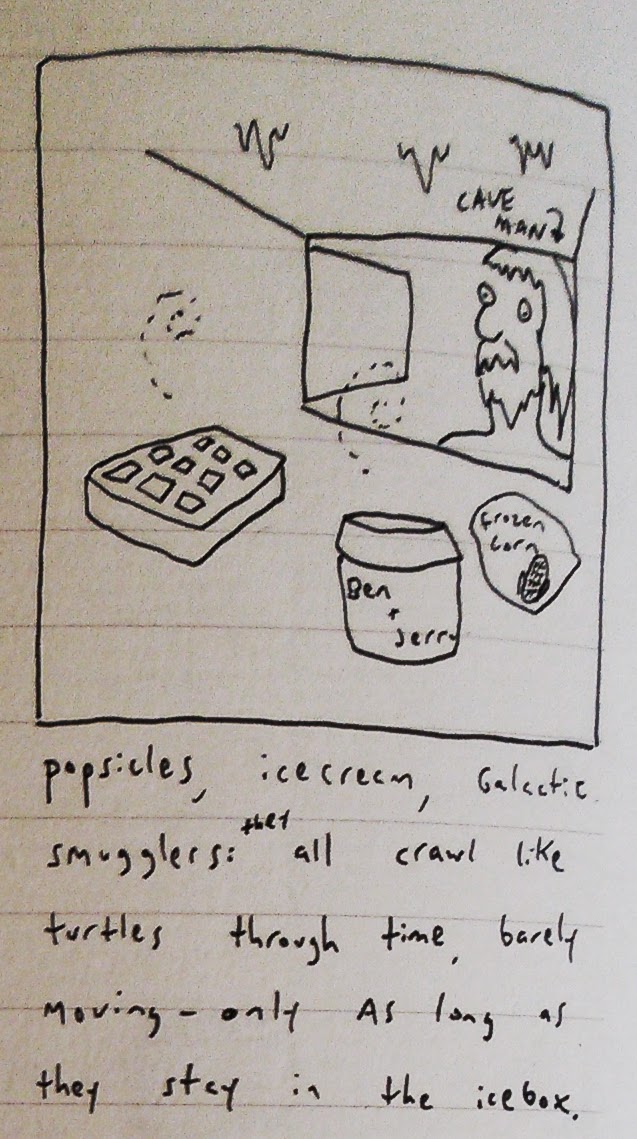 CAVE
MAN
Frozen
Corn
Ben
+
Jerry
popsicles, icecream, Galactic
smugglers: they all crawl like
turtles through time, barely
moving - only As long as
they stay in the icebox.